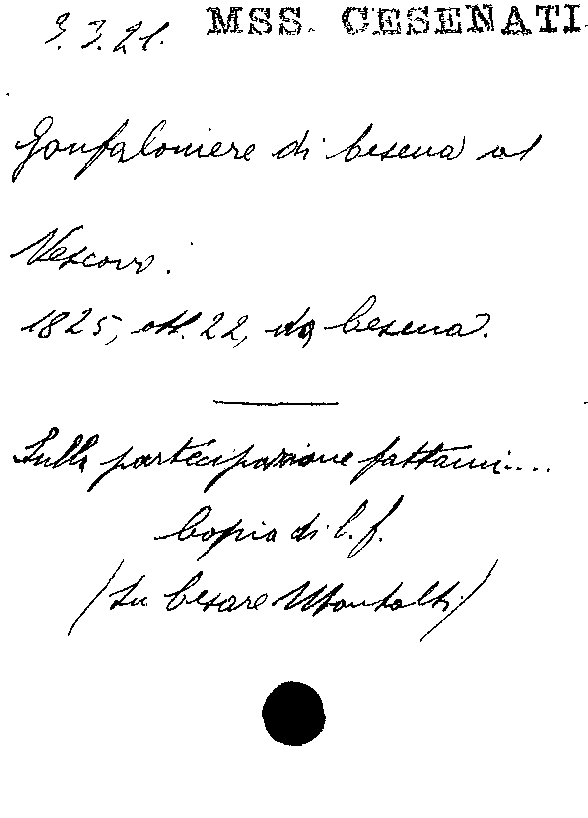 3.3.21. MSS. CESENATI
Gonfaloniere di Cesena al
Vescovo.
1825, ott. 22, da Cesena.
Sulla partecipazione fattami....
Copia di C. f.
(Su Cesare Montalti)